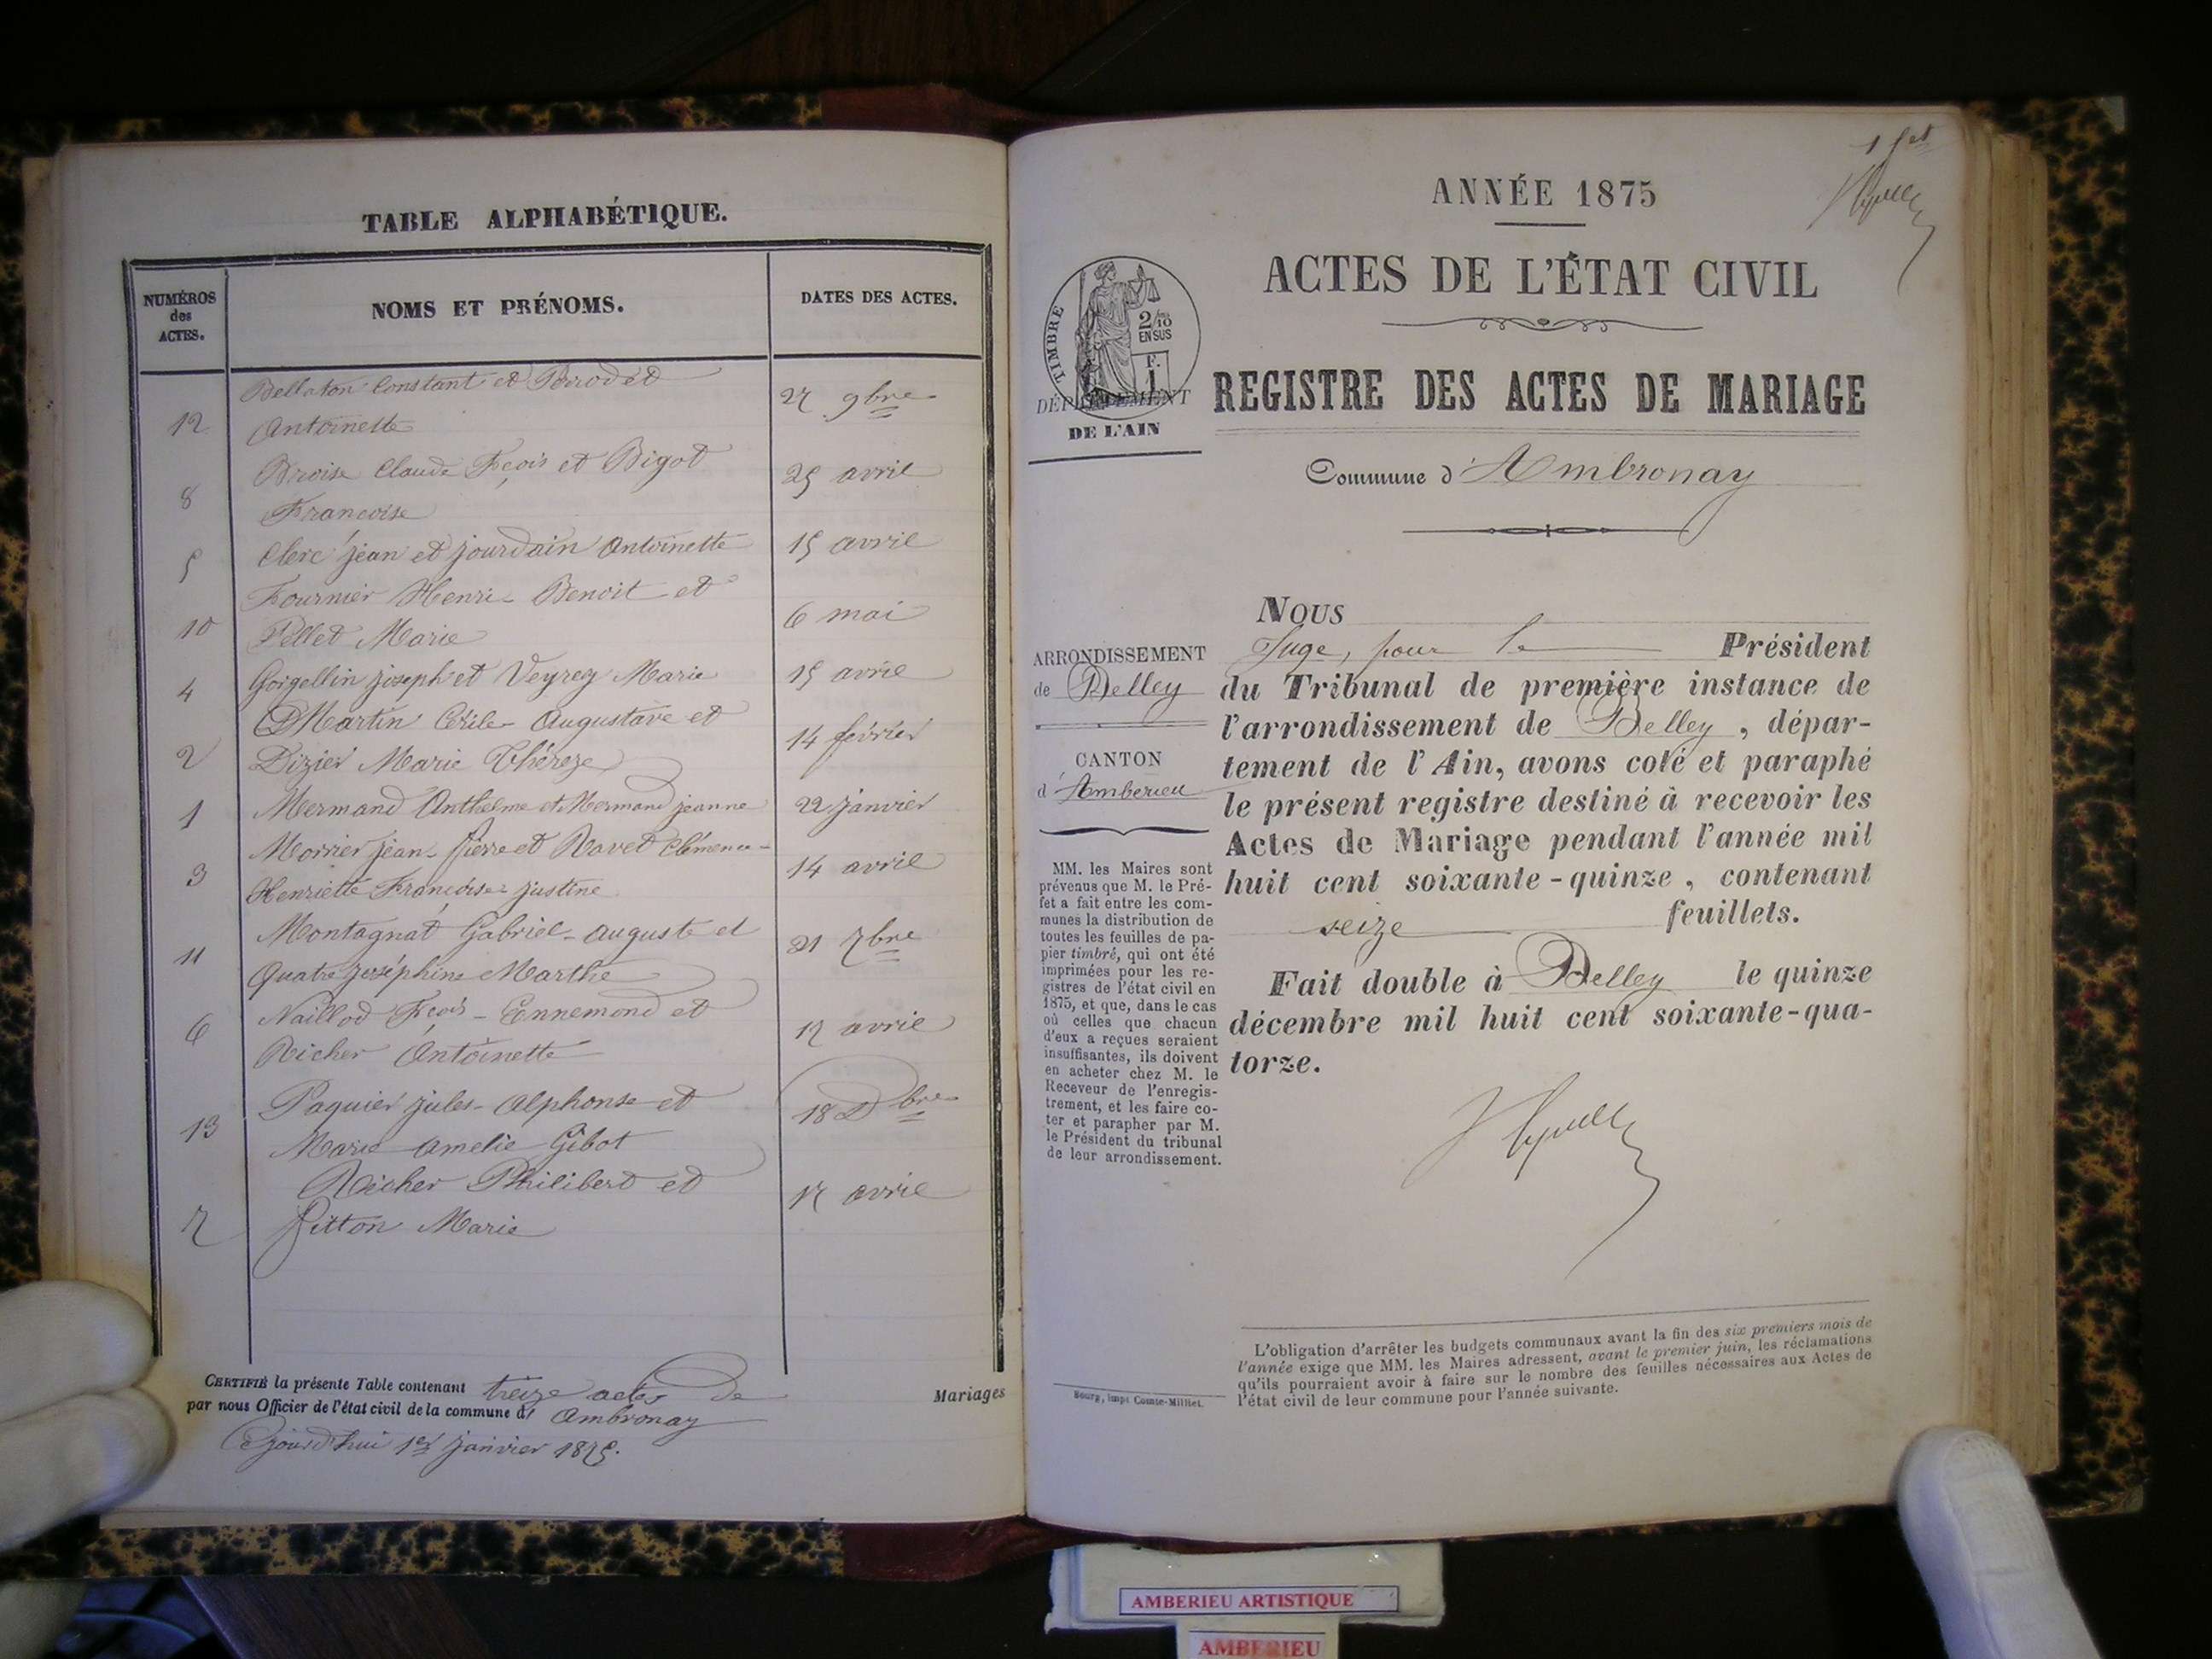 TABLE ALPHABÉTIQUE.
NUMÉROS
des
ACTES.
NOMS ET PRÉNOMS.
DATES DES ACTES.
Bellaton Constant et Perrodet
27 9bre
12
Antoinette
Broise Claude Fçois et Bigot
25 avril
8
Francoise
5
Clerc jean et jourdain Antoinette
15 avril
Fournier Henri Benoit et
6 mai
10
Pellet Marie
4
Gorgellin joseph et Veyrey Marie
15 avril
Martin Augustave et
14 février
2
Dizier Marie Théreze
1
Mermand Anthelme et Mermand jeanne
22 janvier
Morrier jean-Pierre et Ravet Clémence-
14 avril
3
Henriette Francoise justine
Montagnat Gabriel-auguste et
21 7bre
11
Quatre joséphine Marthe
Naillod Fçois-Ennemond et
17 avril
6
Richer Antoinette
Paquier jules-Alphonse et
18 Dbre
13
Marie Amelie Gibot
Richer Philibert et
17 avril
7
Pitton Marie
CERTIFIÉ la présente Table contenant treize actes de
Mariages
par nous Officier de l'état civil de la commune d' Ambronay
Cejourd'hui 1er janvier 1875.
1 fet
ANNÉE 1875
ACTES DE L'ÉTAT CIVIL
TIMBRE
2/10
EN SUS
F.
1
DÉPARTEMENT
DE L'AIN
REGISTRE DES ACTES DE MARIAGE
Commune d'Ambronay
NOUS
Juge, pour le Président
du Tribunal de première instance de
l'arrondissement de Belley, dépar-
tement de l'Ain, avons coté et paraphé
le présent registre destiné à recevoir les
Actes de Mariage pendant l'année mil
huit cent soixante-quinze, contenant
seize feuillets.
Fait double à Belley le quinze
décembre mil huit cent soixante-qua-
torze.
ARRONDISSEMENT
de Belley
CANTON
d'Amberieu
MM. les Maires sont
prévenus que M. le Pré-
fet a fait entre les com-
munes la distribution de
toutes les feuilles de pa-
pier timbré, qui ont été
imprimées pour les re-
gistres de l'état civil en
1875, et que, dans le cas
où celles que chacun
d'eux a reçues seraient
insuffisantes, ils doivent
en acheter chez M. le
Receveur de l'enregis-
trement, et les faire co-
ter et parapher par M.
le Président du tribunal
de leur arrondissement.
Bourg, impr Comte-Milliet.
L'obligation d'arrêter les budgets communaux avant la fin des six premiers mois de
l'année exige que MM. les Maires adressent, avant le premier juin, les réclamations
qu'ils pourraient avoir à faire sur le nombre des feuilles nécessaires aux Actes de
l'état civil de leur commune pour l'année suivante.
AMBERIEU ARTISTIQUE
AMBERIEU